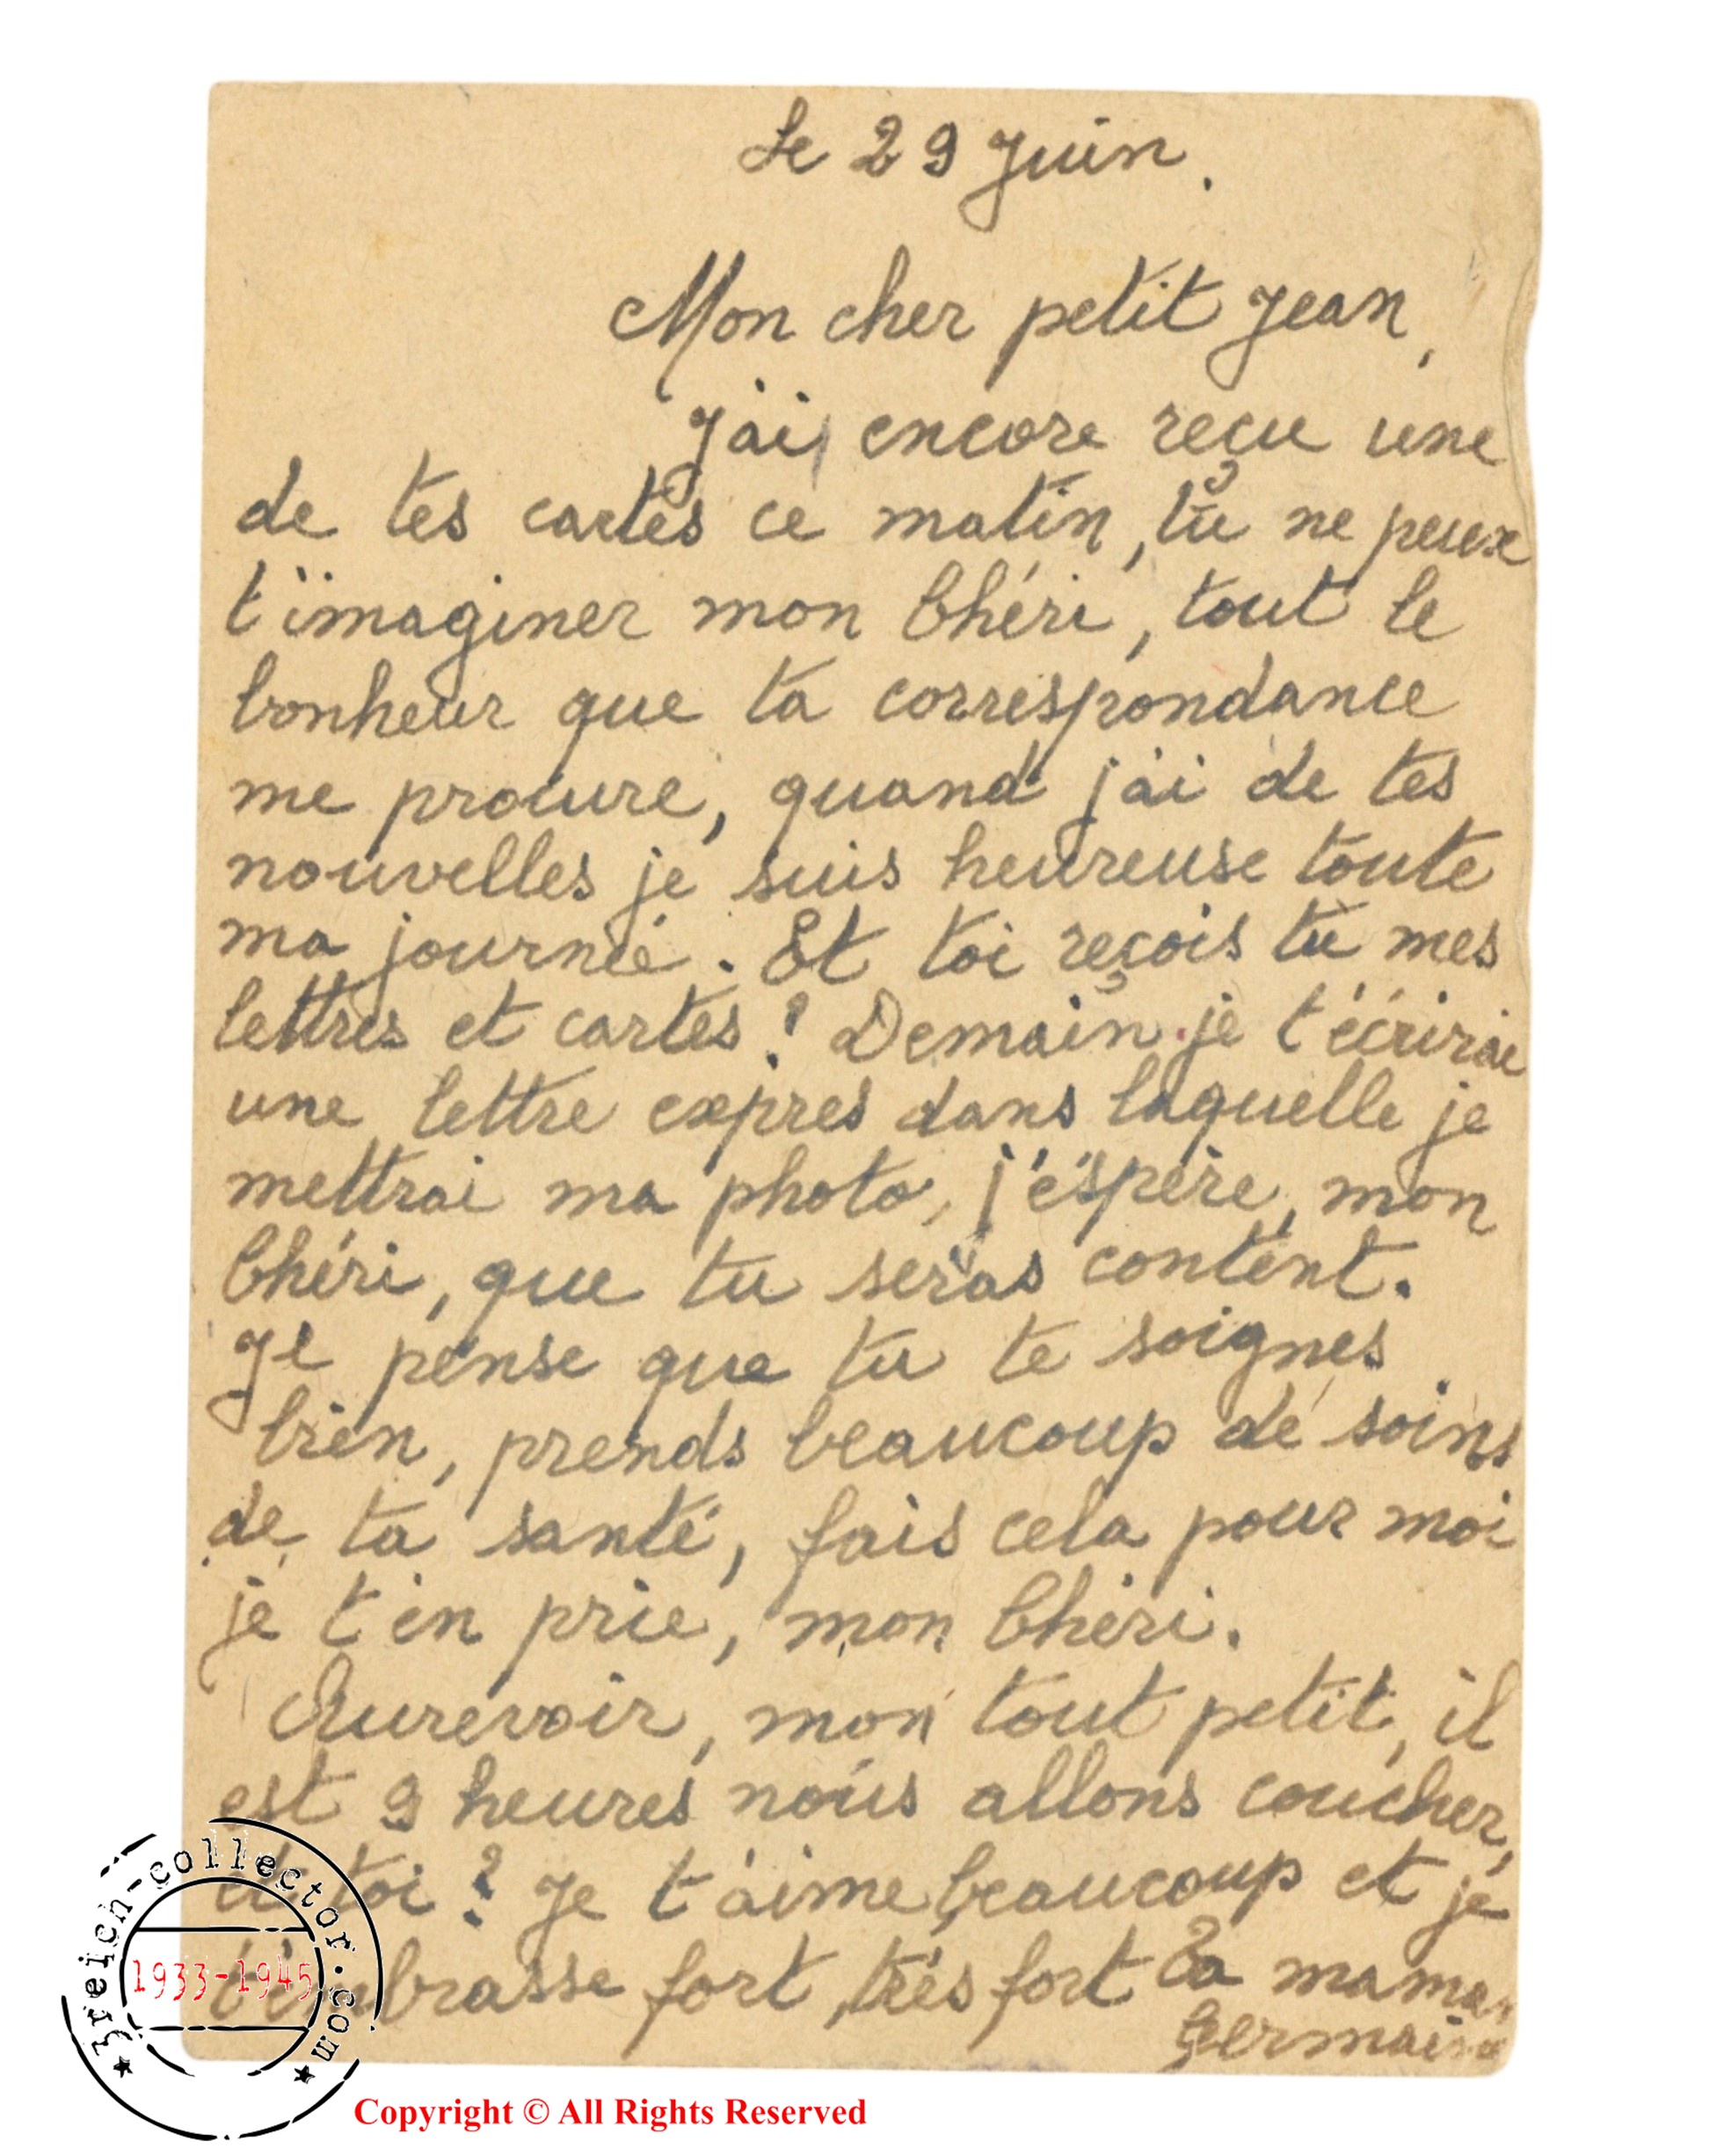 Le 29 Juin.
Mon cher petit Jean,
J'ai encore reçu une
de tes cartes ce matin, tu ne peux
t'imaginer mon Chéri, tout le
bonheur que ta correspondance
me procure, quand j'ai de tes
nouvelles je suis heureuse toute
ma journée. Et toi reçois tu mes
lettres et cartes? Demain je t'écrirai
une lettre expres dans laquelle je
mettrai ma photo, j'éspère, mon
Chéri, que tu seras content.
Je pense que tu te soignes
bien, prends beaucoup de soins
de ta santé, fais cela pour moi
je t'en prie, mon Chéri.
Aurevoir, mon tout petit, il
est 9 heures nous allons coucher,
et toi? Je t'aime beaucoup et je
t'embrasse fort, très fort Ta maman
Germaine
3reich-collector.com
1933-1945
Copyright © All Rights Reserved